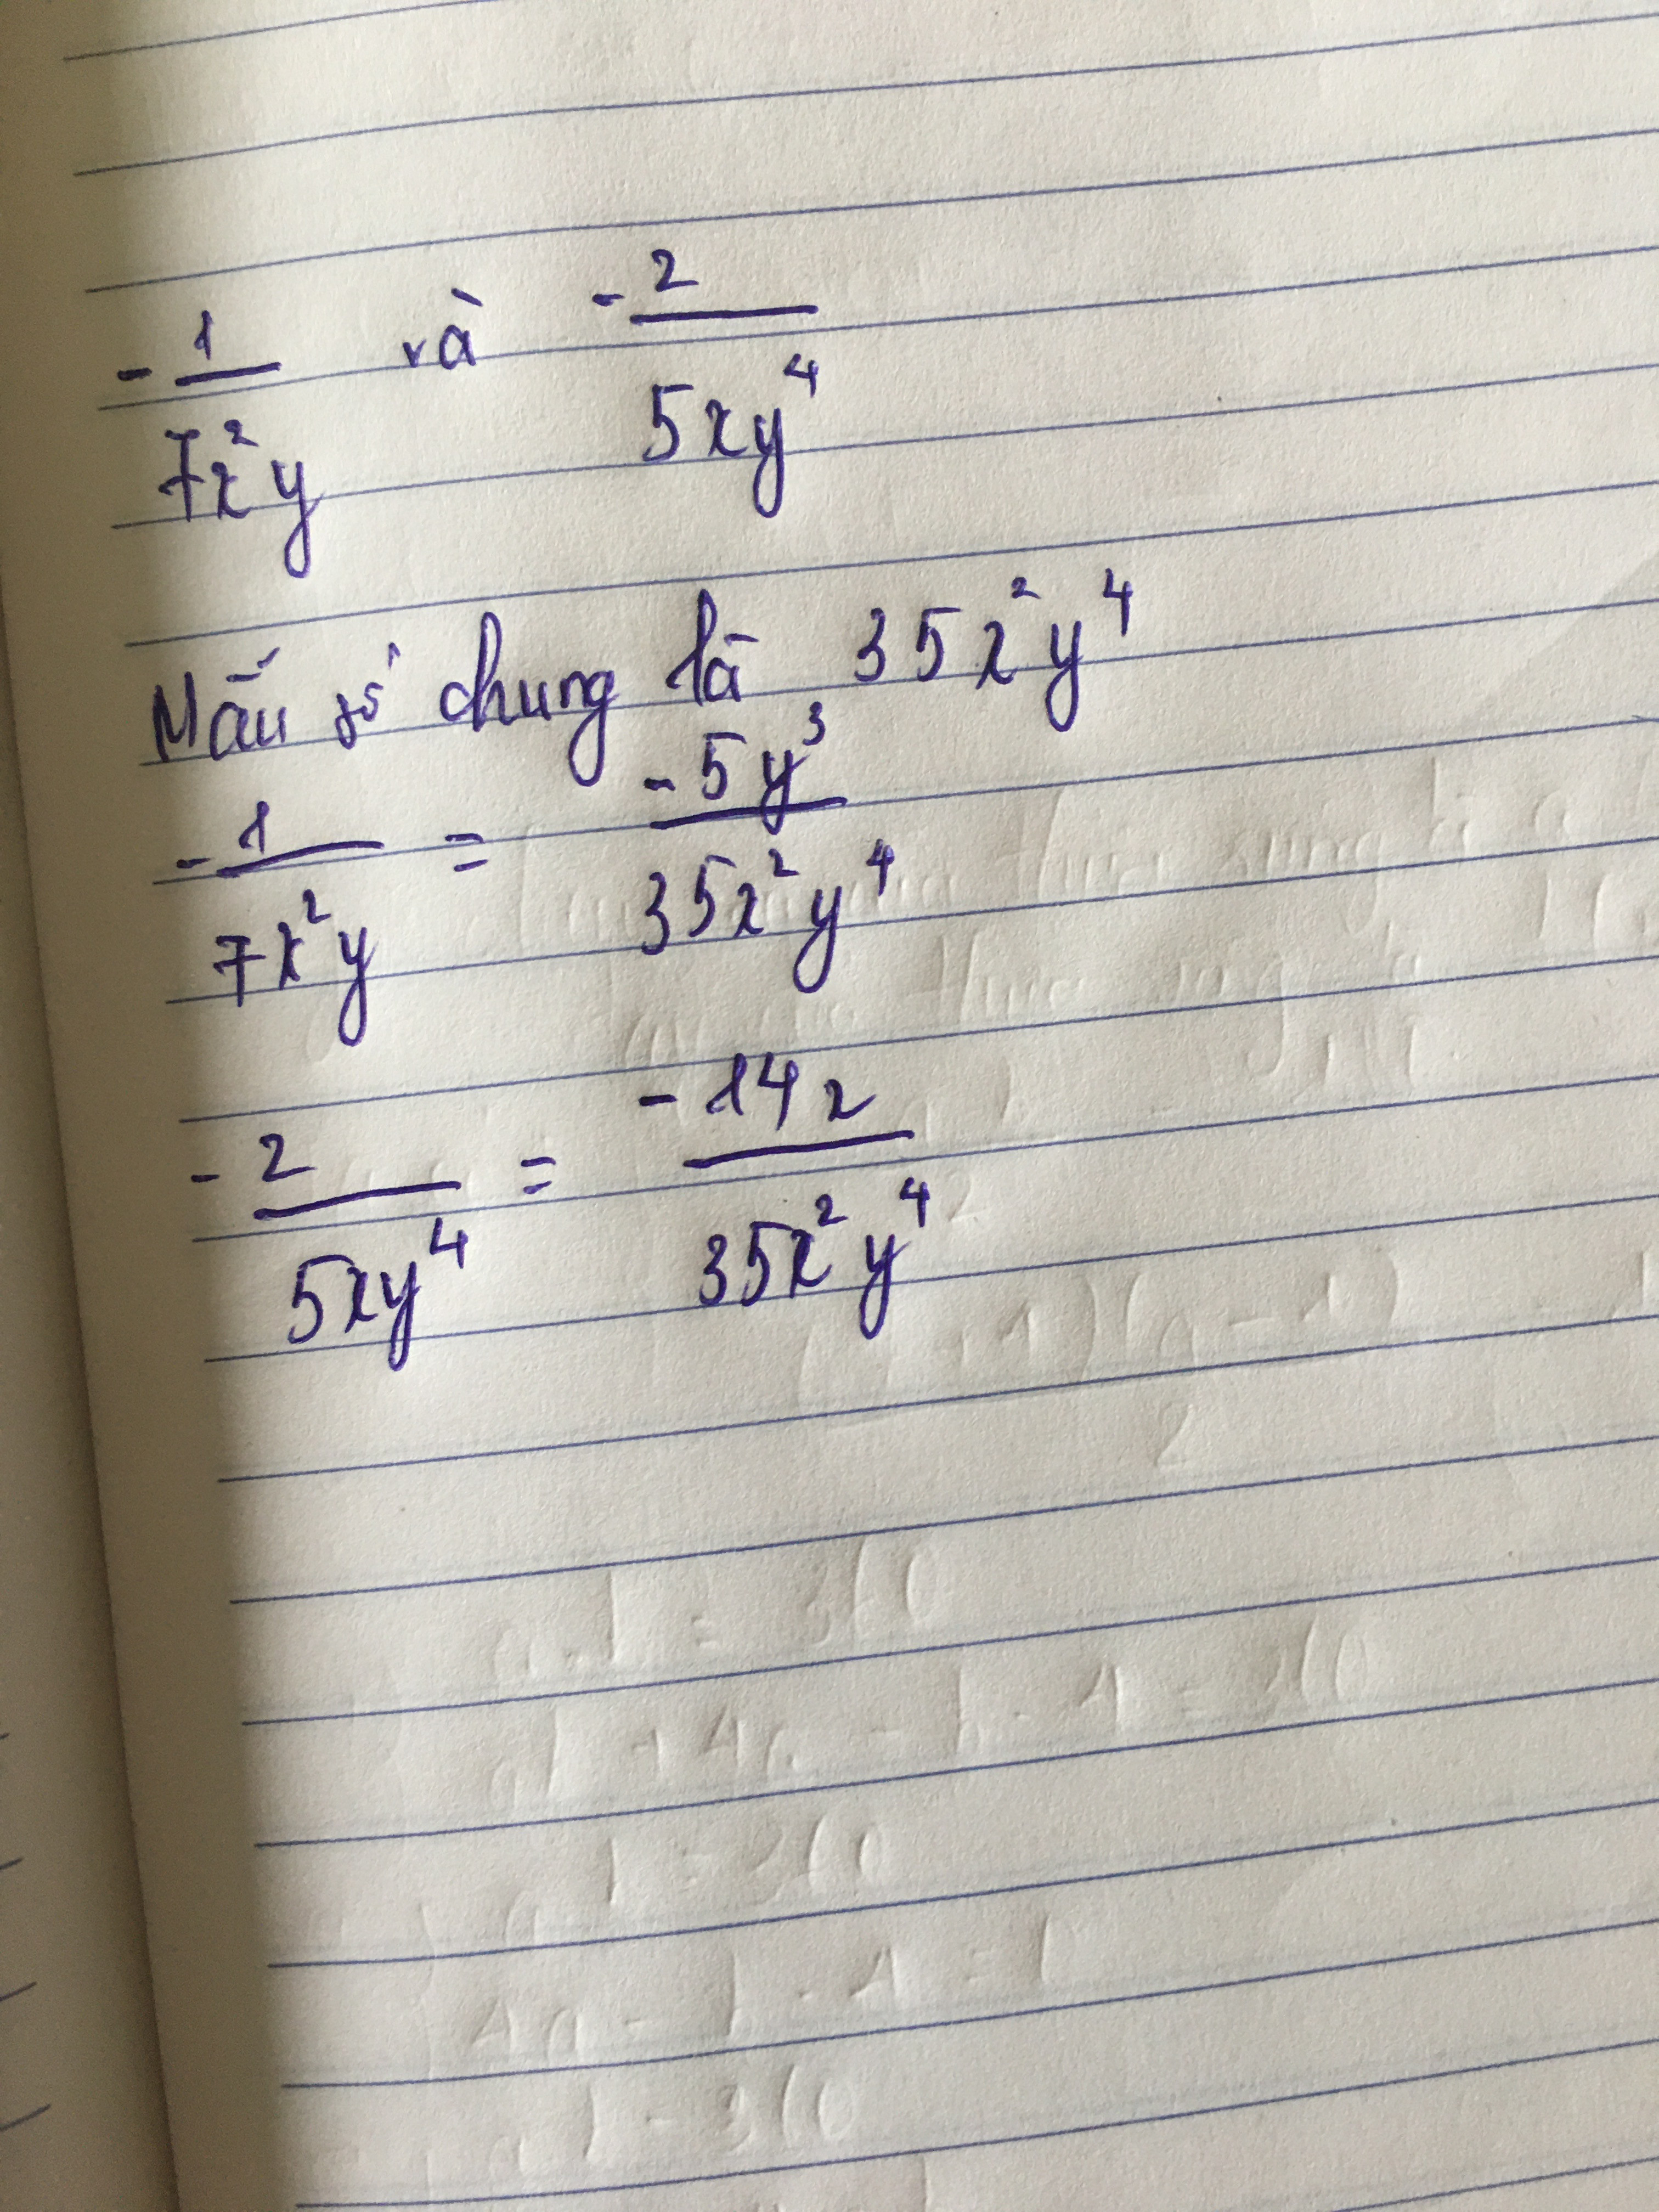 -1/7x²y và -2/5xy⁴
Mẫu số chung là 35x²y⁴
-1/7x²y = -5y³/35x²y⁴
-2/5xy⁴ = -14x/35x²y⁴